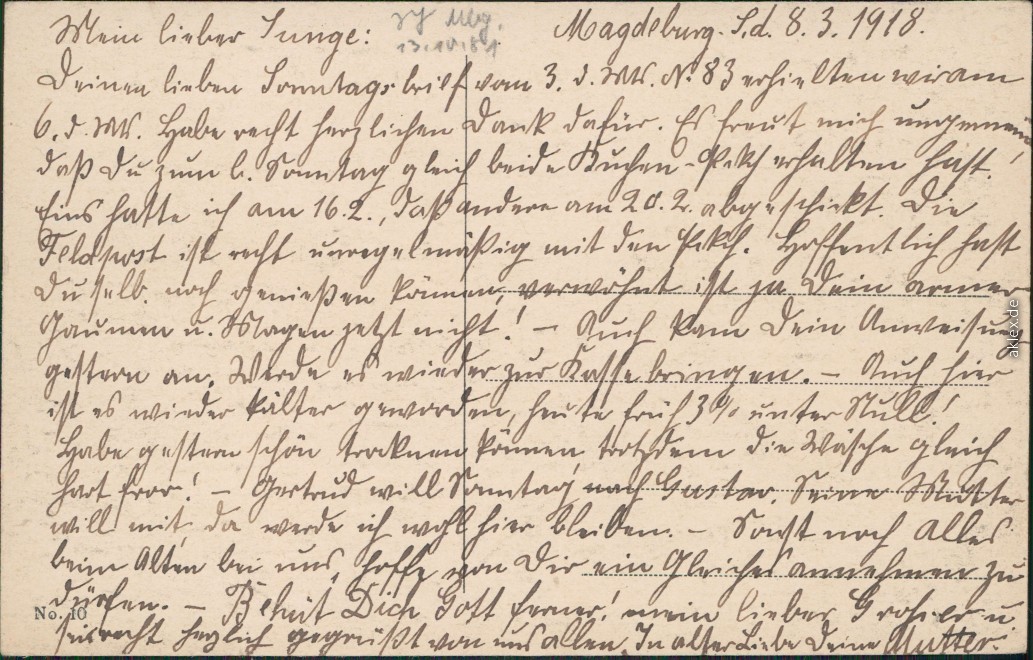 Mein lieber Junge: Magdeburg. S.d. 8.3.1918.
Deinen lieben Sonntagsbrief vom 3. d. Mts. No. 83 erhielten wir am
6. d. Mts. Habe recht herzlichen Dank dafür. Es freut mich ungemein
daß Du zum l. Sonntag gleich beide Kuchen-Pckch erhalten hast.
Eins hatte ich am 16.2., daß andere am 20.2. abgeschickt. Die
Feldpost ist recht unregelmäßig mit den Pckch. Hoffentlich hast
Du selb. noch genießen können, verwöhnt ist ja Dein armer
Gaumen u. Magen jetzt nicht! – Auch kam Dein Anweisung
gestern an. Werde es wieder zur Kasse bringen. – Auch hier
ist es wieder kälter geworden, heute früh 3° unter Null!
Habe gestern schön trocknen können trotzdem die Wäsche gleich
hart fror! – Gertrud will Sonntag nach Gustav. Seine Mutter
will mit, da werde ich wohl hier bleiben. – Sonst noch Alles
beim Alten bei uns, hoffe von Dir ein Gleiches annehmen zu
dürfen. – Behüt Dich Gott ferner! mein lieber u
sei recht herzlich gegrüßt von uns allen. In alter Liebe Deine Mutter.
No. 10
aklex.de